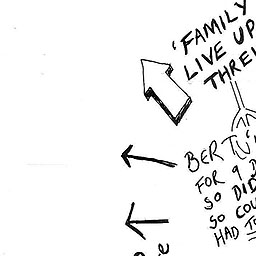 'FAMILY
LIVE UP
BERTU'
FOR 9 D
SO DID
SO COU
HAD